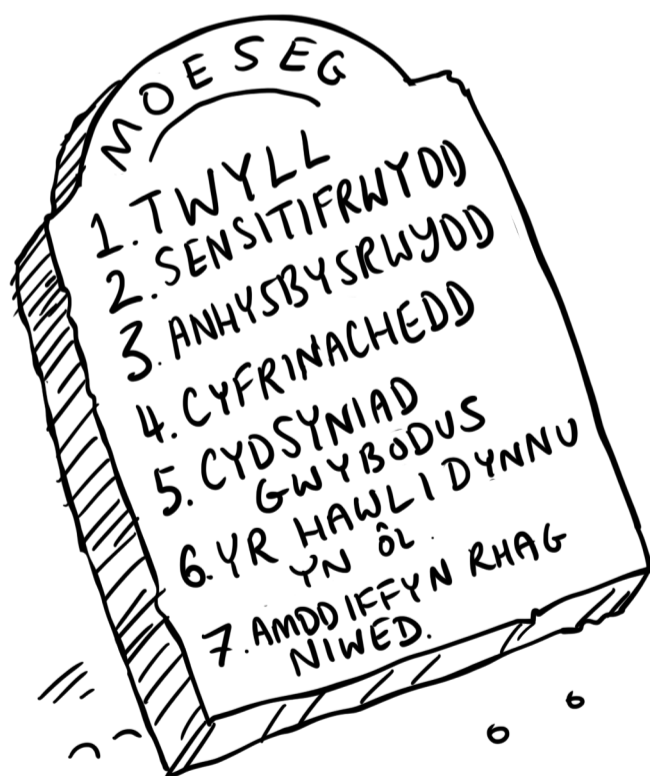 MOESEG
1. TWYLL
2. SENSITIFRWYDD
3. ANHYSBYSRWYDD
4. CYFRINACHEDD
5. CYDSYNIAD
GWYBODUS
6. YR HAWL I DYNNU
YN ÔL.
7. AMDDIFFYN RHAG
NIWED.